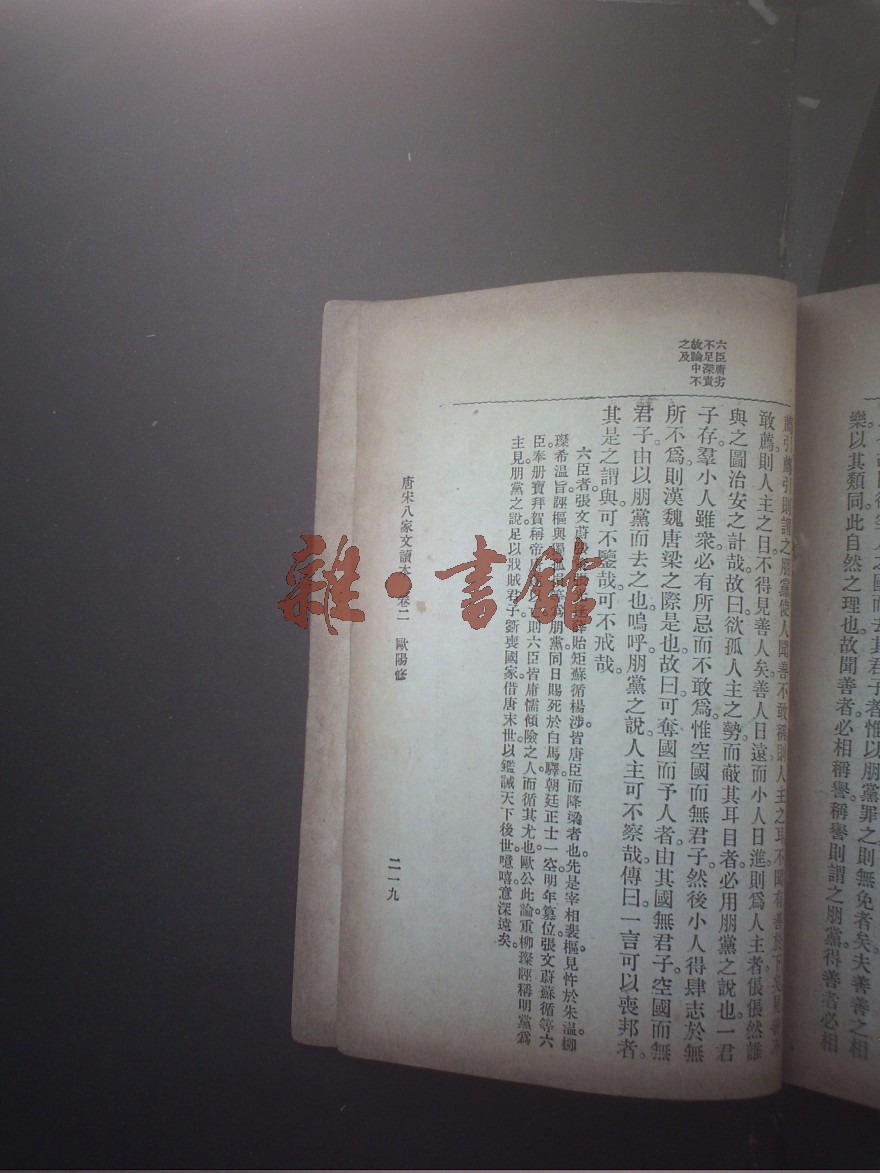 而去其君子者惟以朋黨罪之則無免者矣夫善善之相
樂以其類同此自然之理也故聞善者必相稱譽稱譽則謂之朋黨得善者必相
薦引薦引則謂之朋黨使人聞善不敢稱則人主之耳不聞有善於下矣見善不
敢薦則人主之目不得見善人矣善人日遠而小人日進則爲人主者倀倀然誰
與之圖治安之計哉故曰欲孤人主之勢而蔽其耳目者必用朋黨之說也一君
子存羣小人雖衆必有所忌而不敢爲惟空國而無君子然後小人得肆志於無
所不爲則漢魏唐梁之際是也故曰可奪國而予人者由其國無君子空國而無
君子由以朋黨而去之也嗚呼朋黨之說人主可不察哉傳曰一言可以喪邦者
其是之謂與可不鑒哉可不戒哉
六臣庸劣
不足深責
故論中不
之及
六臣者張文蔚 貽矩蘇循楊涉皆唐臣而降梁者也先是宰相裴樞見忤於朱溫柳
璨希溫旨誣樞與 朋黨同日賜死於白馬驛朝廷正士一空明年篡位張文蔚蘇循等六
臣奉册寶拜賀稱帝 則六臣皆庸懦傾險之人而循其尤也歐公此論重柳璨誣稱朋黨爲
主見朋黨之說足以戕賊君子斵喪國家借唐末世以鑑誡天下後世噫嘻意深遠矣
唐宋八家文讀本 卷二 歐陽修
二一九
雜·書館